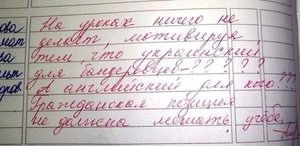 ова На уроках ничего не
мат делает, мотивируя
ва тем, что украинский
для бандеровцев-?????
А английский для кого???
Гражданская позиция
не должна мешать учебе